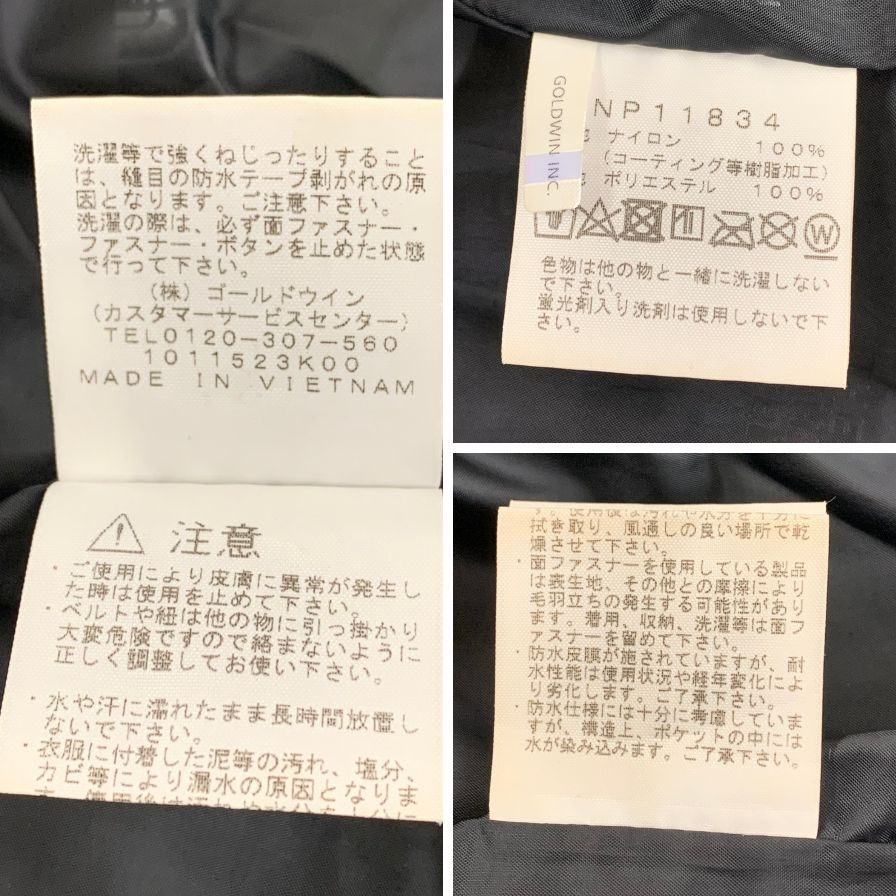 洗濯等で強くねじったりすること
は、縫目の防水テープ剥がれの原
因となります。ご注意下さい。
洗濯の際は、必ず面ファスナー・
ファスナー・ボタンを止めた状態
で行って下さい。
(株) ゴールドウイン
(カスタマーサービスセンター)
TEL0120-307-560
1011523K00
MADE IN VIETNAM
注意
・ご使用により皮膚に異常が発生し
た時は使用を止めて下さい。
・ベルトや紐は他の物に引っ掛かり
大変危険ですので絡まないように
正しく調整してお使い下さい。
・水や汗に濡れたまま長時間放置し
ないで下さい。
・衣服に付着した泥等の汚れ、塩分、
カビ等により漏水の原因となりま
す。使用後は汚れや水分を十分に
GOLDWIN INC.
NP11834
ナイロン 100%
(コーティング等樹脂加工)
ポリエステル 100%
W
色物は他の物と一緒に洗濯しない
で下さい。
蛍光剤入り洗剤は使用しないで下
さい。
す。使用後は汚れや水分を十分に
拭き取り、風通しの良い場所で乾
燥させて下さい。
・面ファスナーを使用している製品
は表生地、その他との摩擦により
毛羽立ちの発生する可能性があり
ます。着用、収納、洗濯等は面フ
ァスナーを留めて下さい。
・防水皮膜が施されていますが、耐
水性能は使用状況や経年変化によ
り劣化します。ご了承下さい。
・防水仕様には十分に考慮していま
すが、構造上、ポケットの中には
水が染み込みます。ご了承下さい。